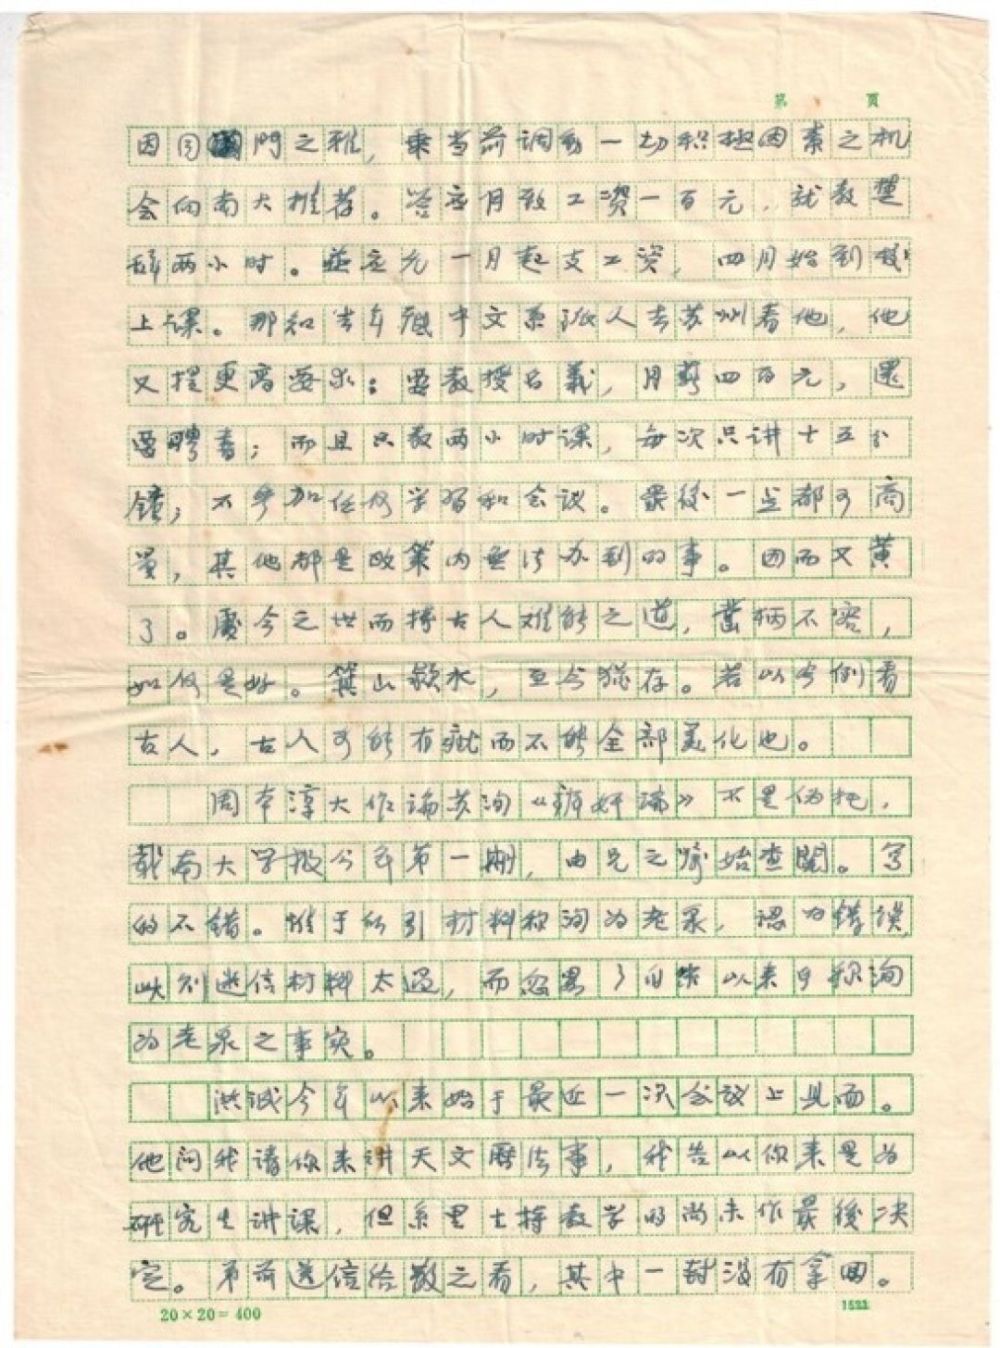 第 页
因同門之雅，乘当前调动一切积极因素之机
会向南大推荐。答应月致工资一百元，就教楚
辞两小时。並应允一月起支工资，四月始到校
上课。那知去年底中文系派人去苏州看他，他
又提更高要求：要教授名義，月薪四百元，還
要聘書；而且只教两小时课，每次只讲十五分
鐘；不参加任何学習和会议。最後一点都可商
量，其他都是政策内無法办到的事。因而又黄
了。處今之世而持古人难能之道，凿枘不容，
如何是好。箕山颍水，至今猶存。若以今例看
古人，古人可能有疵而不能全部美化也。
周本淳大作论苏洵《辨奸论》不是伪托，
載南大学报今年第一期，由兄之嘱始查閱。写
的不错。惟于所引材料称洵为老泉，認为错误，
此则迷信材料太過，而忽畧了自宋以来早称洵
为老泉之事实。
洪诚今年以来始于最近一次会议上見面。
他问我请你来讲天文曆法事，我告以你来是为
研究生讲课，但系里主持教学的尚未作最後决
定。弟前送信给散之看，其中一封没有拿回。
20×20=400
1522